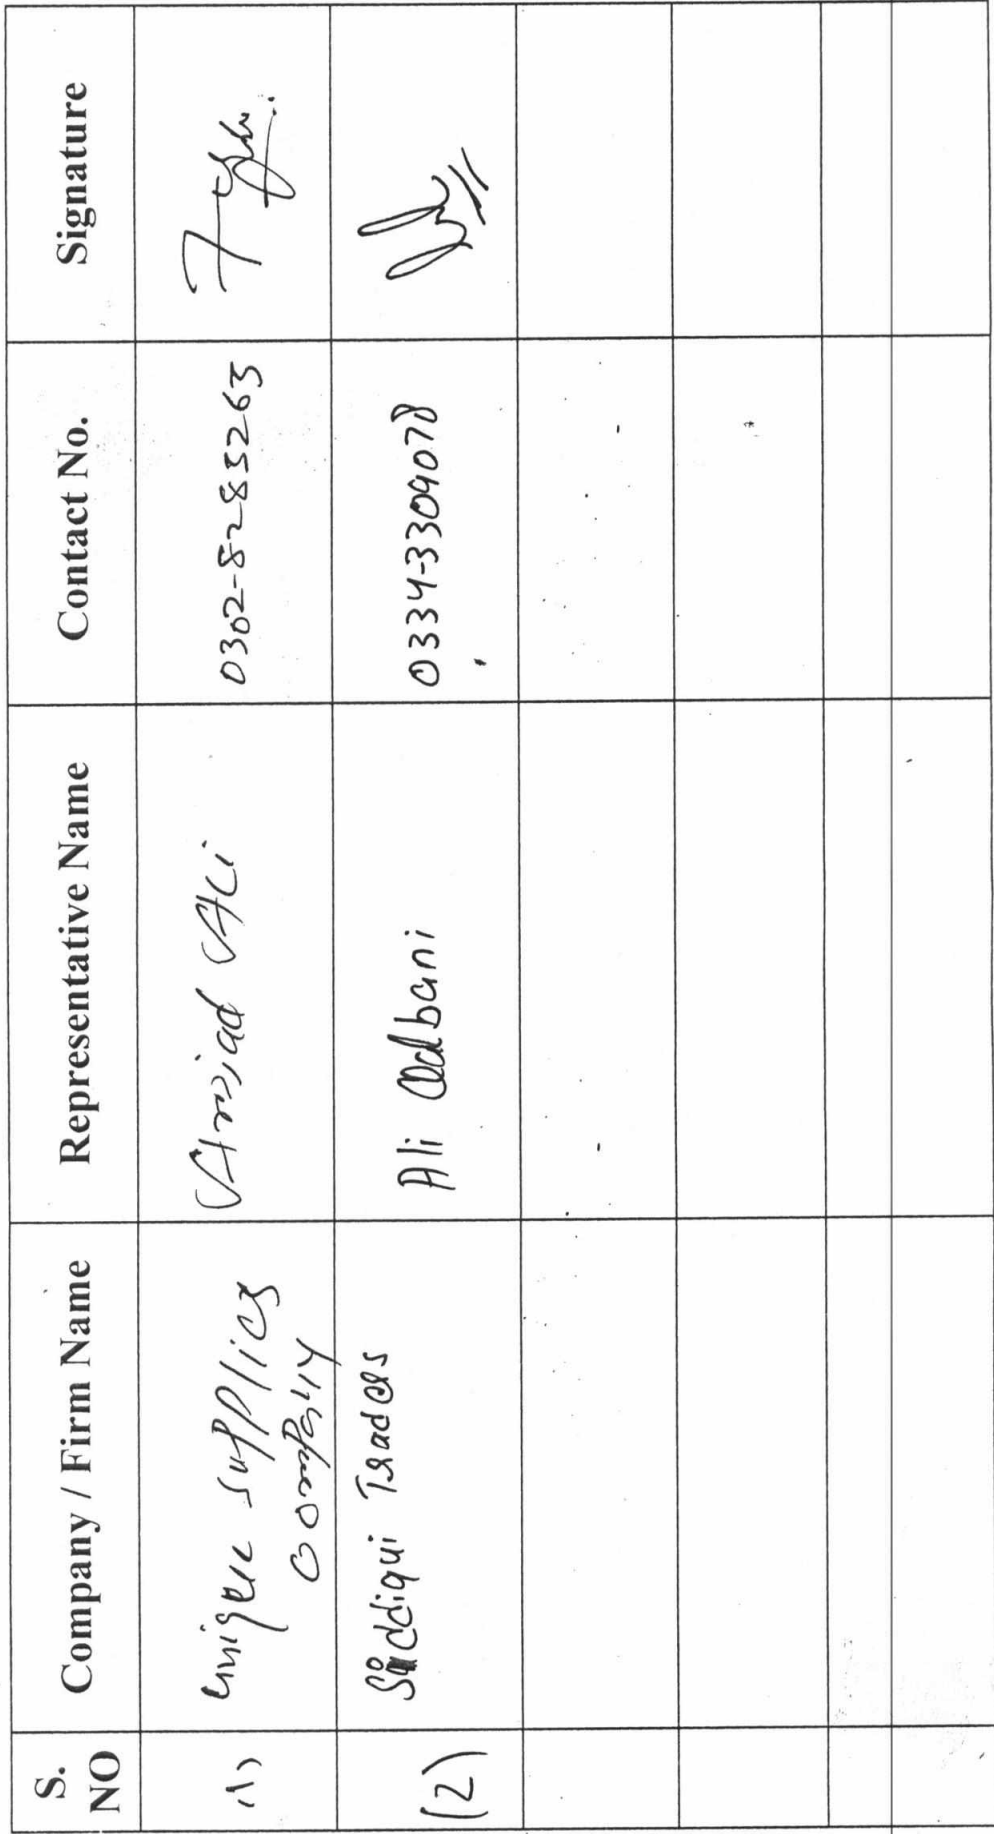 S. NO Company / Firm Name Representative Name Contact No. Signature
(1) Unique Supplies Company Amjad Ali 0302-8283263
(2) Siddiqui Traders Ali 0334-3309078